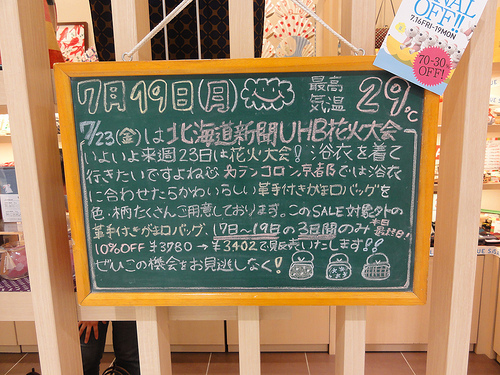 7月19日(月)
最高気温 29℃
7/23(金)は北海道新聞UHB花火大会
いよいよ来週23日は花火大会!浴衣を着て
行きたいですよね♡ カランコロン京都では浴衣
に合わせたらかわいらしい革手付きがま口バッグを
色・柄たくさんご用意しております。このSALE対象外の
革手付きがま口バッグ、17日〜19日の3日間のみ 本日最終日!
10%OFF ¥3780→¥3402で販売いたします!!
ぜひこの機会をお見逃しなく!
OFF!!
7.16FRI-19MON
70-30%
OFF!